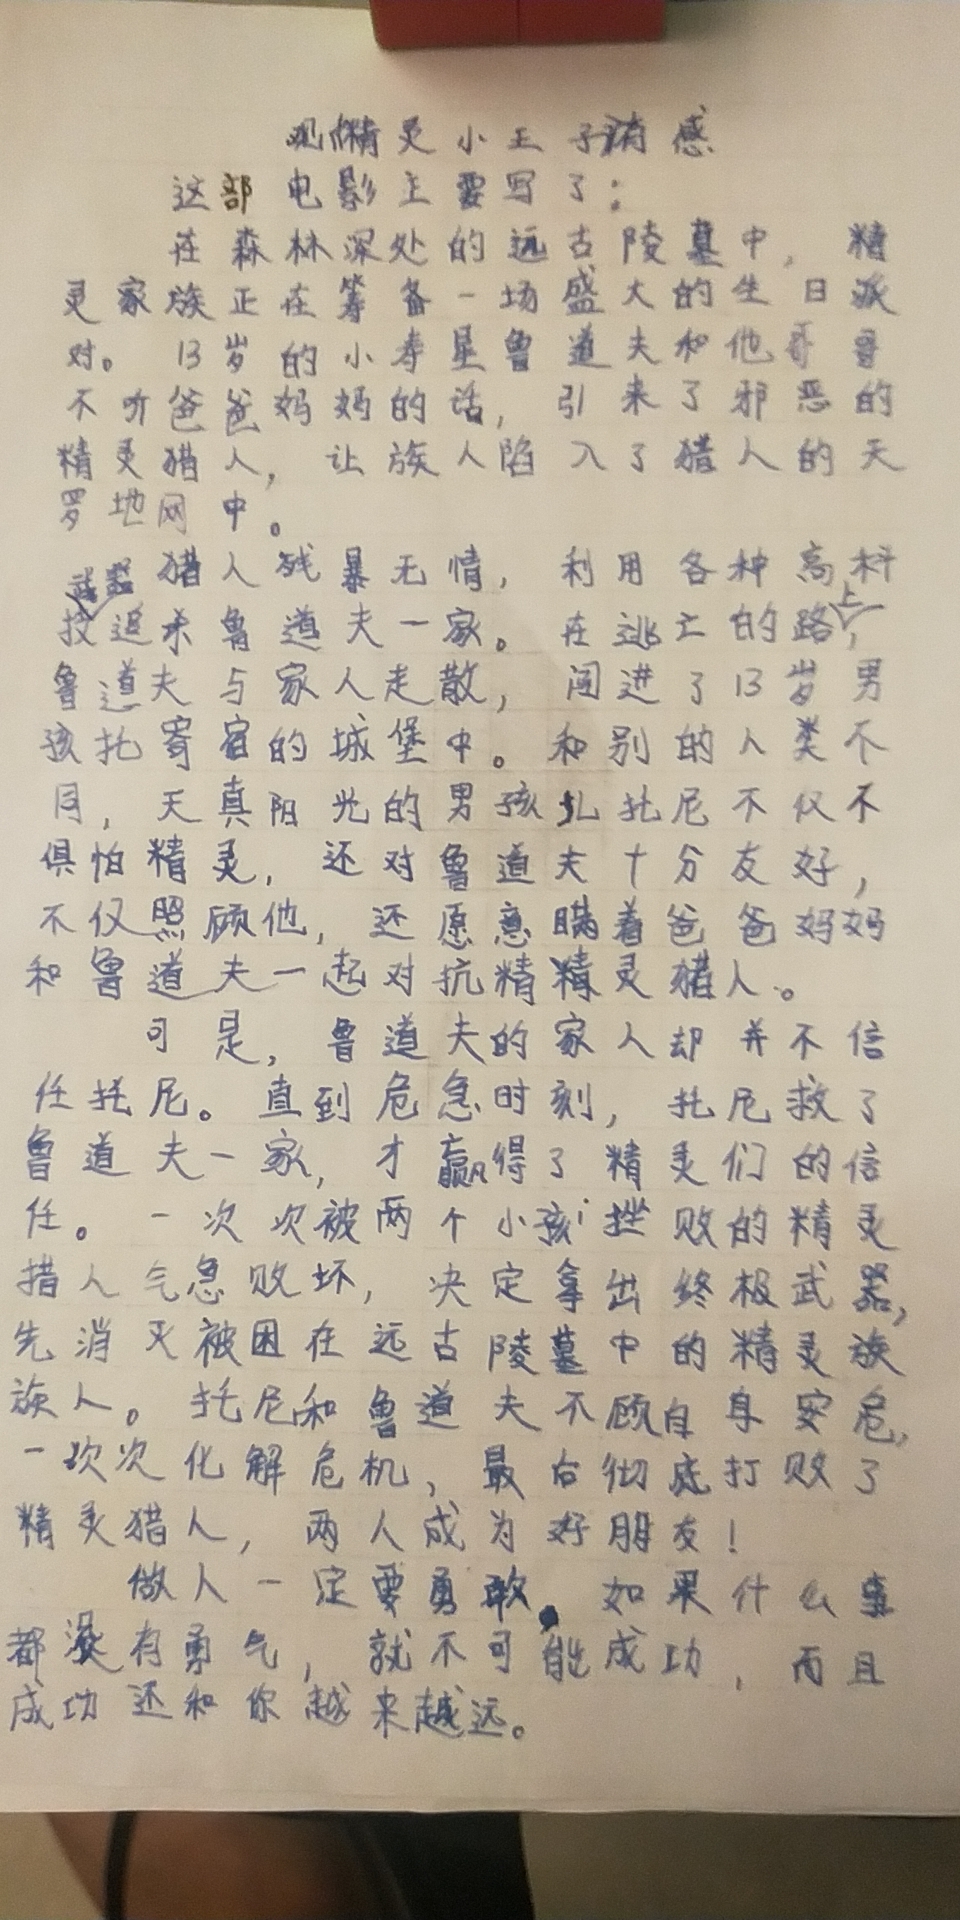 观《精灵小王子》有感
这部电影主要写了：
在森林深处的远古陵墓中，精
灵家族正在筹备一场盛大的生日派
对。13岁的小寿星鲁道夫和他哥哥
不听爸爸妈妈的话，引来了邪恶的
精灵猎人，让族人陷入了猎人的天
罗地网中。
猎人残暴无情，利用各种高科
技武器追杀鲁道夫一家。在逃亡的路上，
鲁道夫与家人走散，闯进了13岁男
孩托寄宿的城堡中。和别的人类不
同，天真阳光的男孩托尼不仅不
惧怕精灵，还对鲁道夫十分友好，
不仅照顾他，还愿意瞒着爸爸妈妈
和鲁道夫一起对抗精精灵猎人。
可是，鲁道夫的家人却并不信
任托尼。直到危急时刻，托尼救了
鲁道夫一家，才赢得了精灵们的信
任。一次次被两个小孩挫败的精灵
猎人气急败坏，决定拿出终极武器，
先消灭被困在远古陵墓中的精灵族
族人。托尼和鲁道夫不顾自身安危，
一次次化解危机，最后彻底打败了
精灵猎人，两人成为好朋友！
做人一定要勇敢。如果什么事
都没有勇气，就不可能成功，而且
成功还和你越来越远。